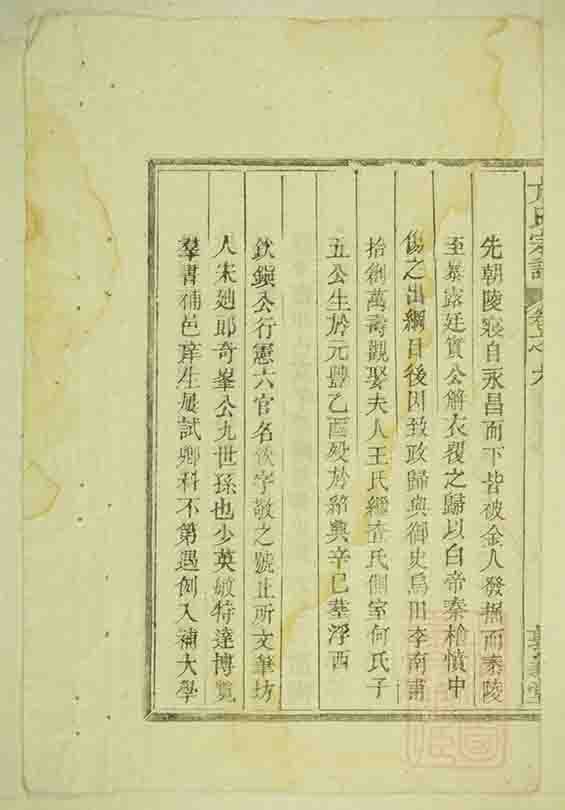 方氏宗譜 卷之九
先朝陵寢自永昌而下皆被金人發掘而泰陵
至暴露廷實公解衣覆之歸以白帝秦檜憤中
傷之出綱目後因致政歸與御史烏田李南甫
抬創萬壽觀娶夫人王氏繼查氏側室何氏子
五公生於元豐乙酉歿於紹興辛巳墓浮西
欽鎮公行憲六官名欽字敬之號止所文筆坊
人宋廸郎奇峯公九世孫也少英敏特達博覽
羣書補邑庠生屢試鄉科不第遇例入補大學